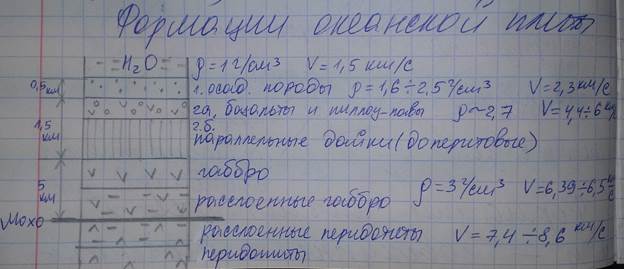 Формации океанской плиты
H₂O ρ=1 г/см³ V=1,5 км/с
0,5 км 1. осад. породы ρ=1,6÷2,5 г/см³ V=2,3 км/с
2а, базальты и пиллоу-лавы ρ~2,7 V=4,4÷6 км/с
1,5 км 2.б. параллельные дайки (долеритовые)
габбро
5 км ρ=3 г/см³ V=6,39÷6,5 км/с
расслоенные габбро
Мохо
расслоенные перидотиты V=7,4÷8,6 км/с
перидотиты